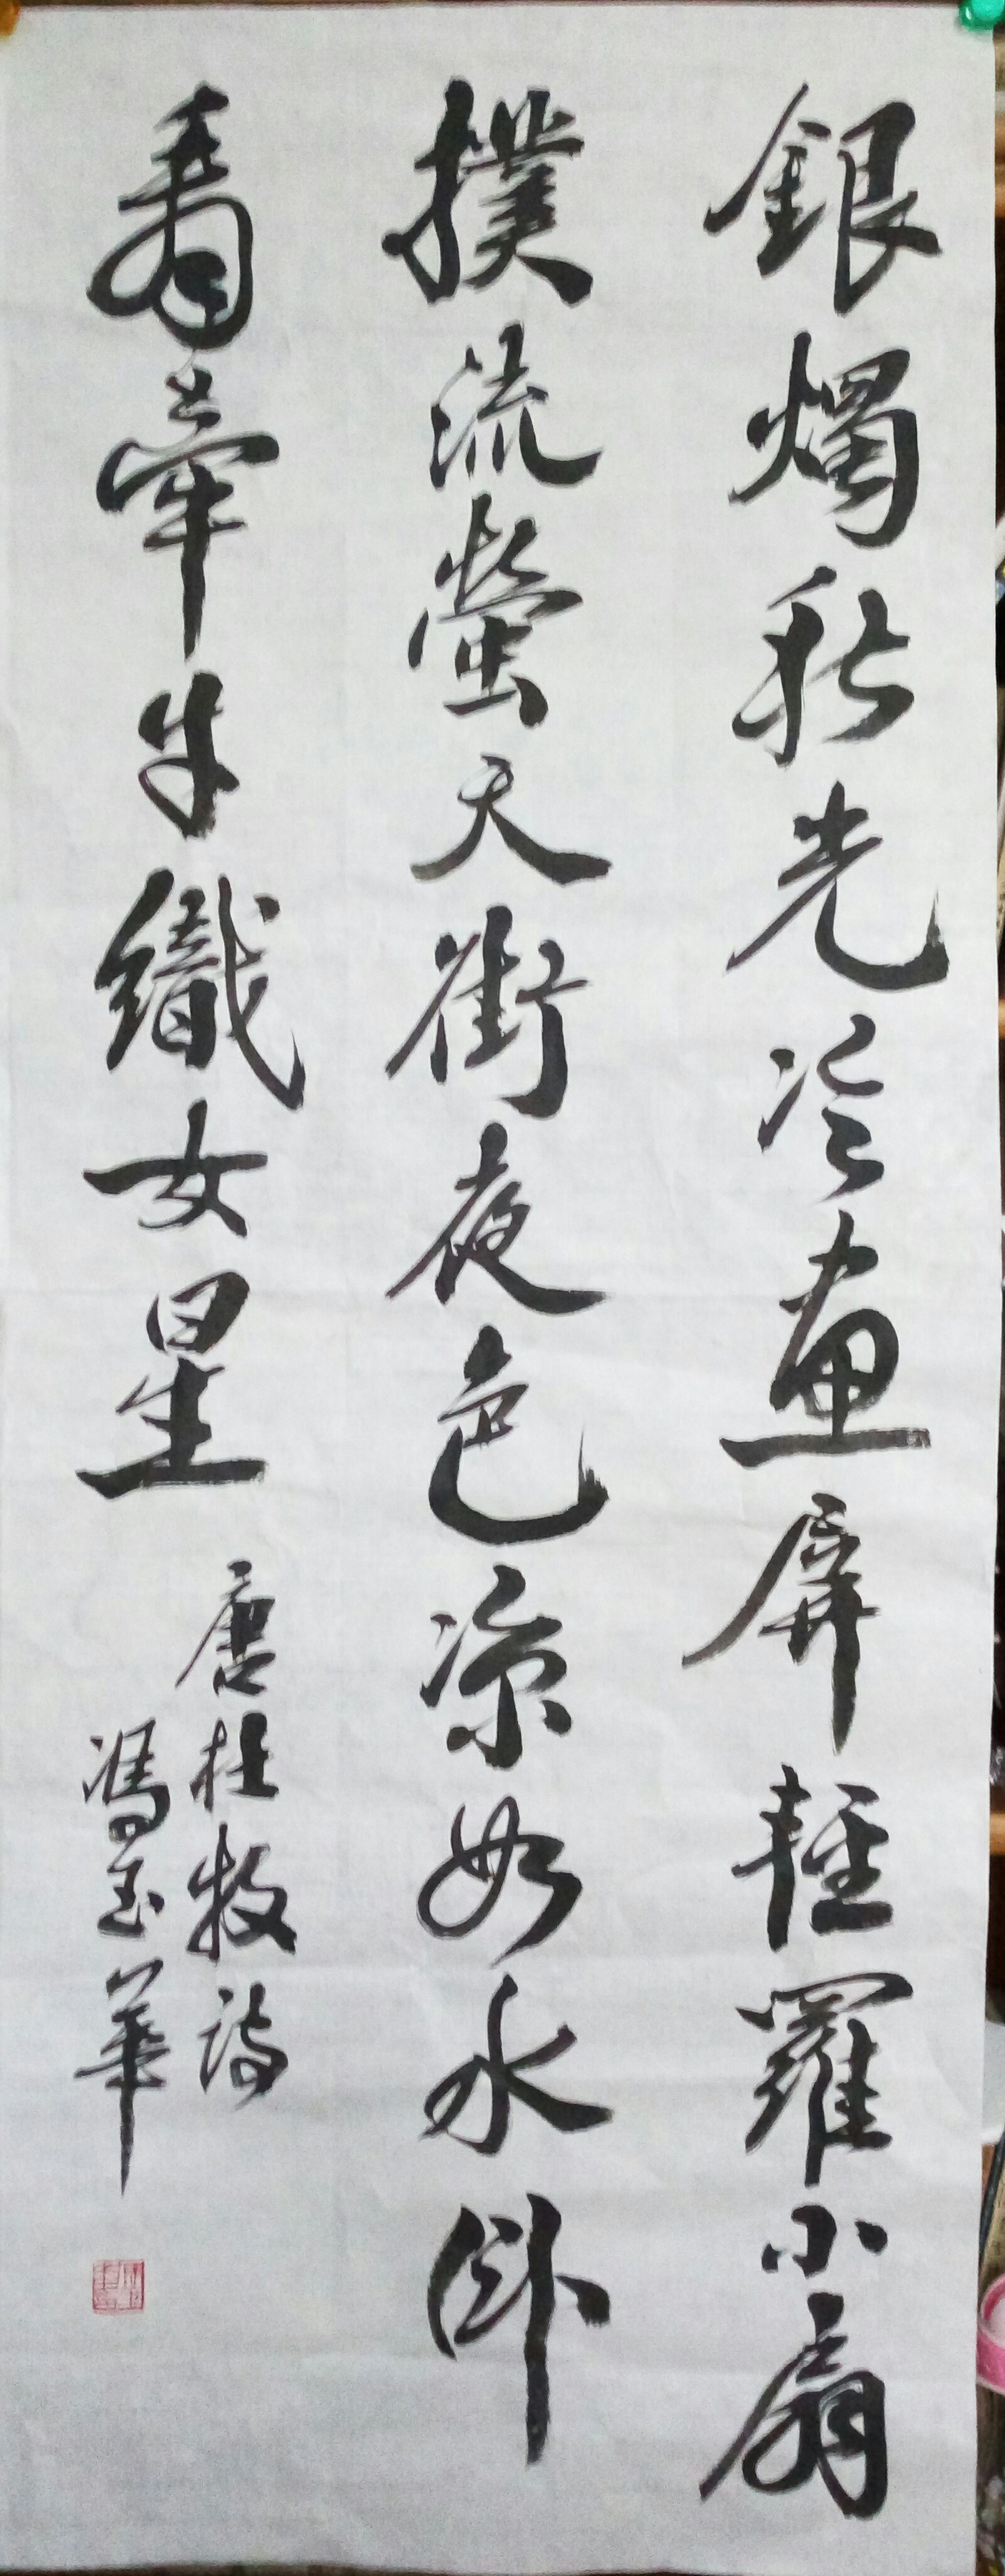 銀燭秋光冷畫屏輕羅小扇
撲流螢天街夜色涼如水卧
看牽牛織女星
唐杜牧詩
馮玉華